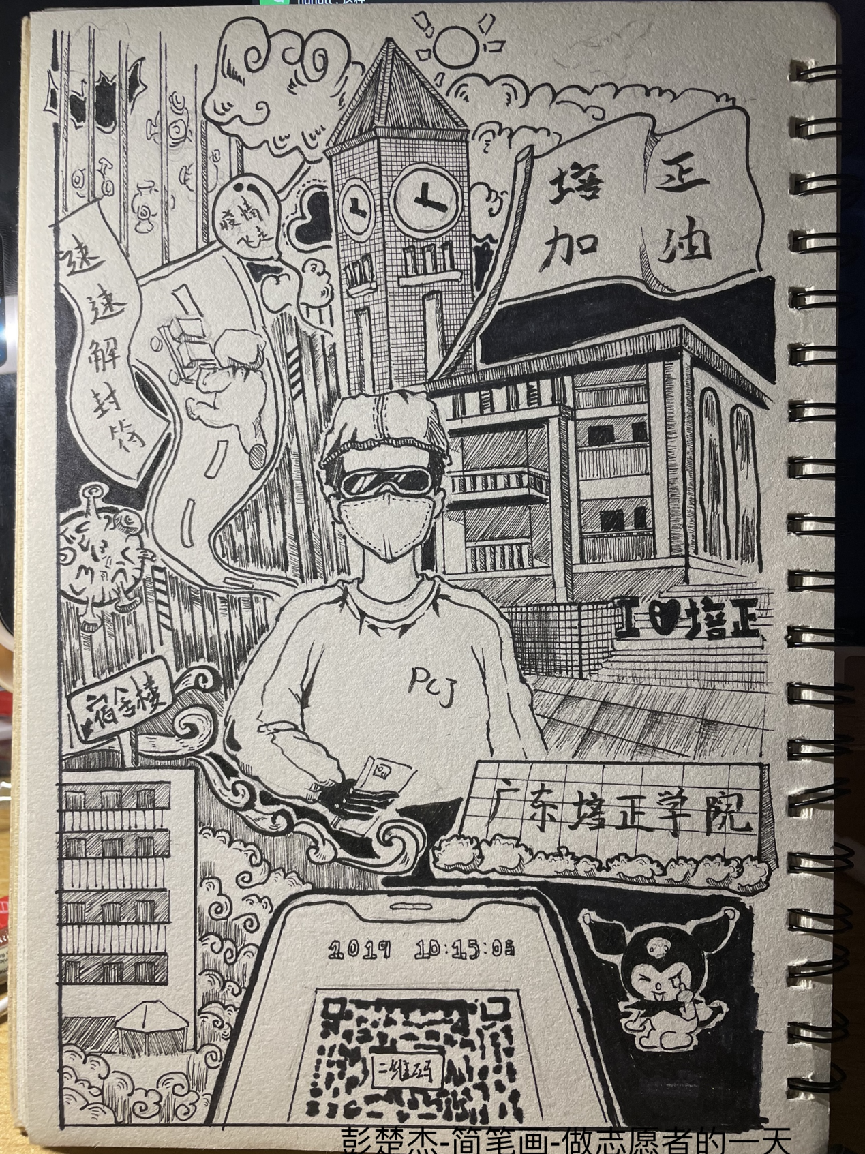 培 正
加 油
疫情
飞走
速
速
解
封
符
I 培正
PCJ
宿舍楼
广东培正学院
2019 10:15:03
二维码
彭楚杰-简笔画-做志愿者的一天